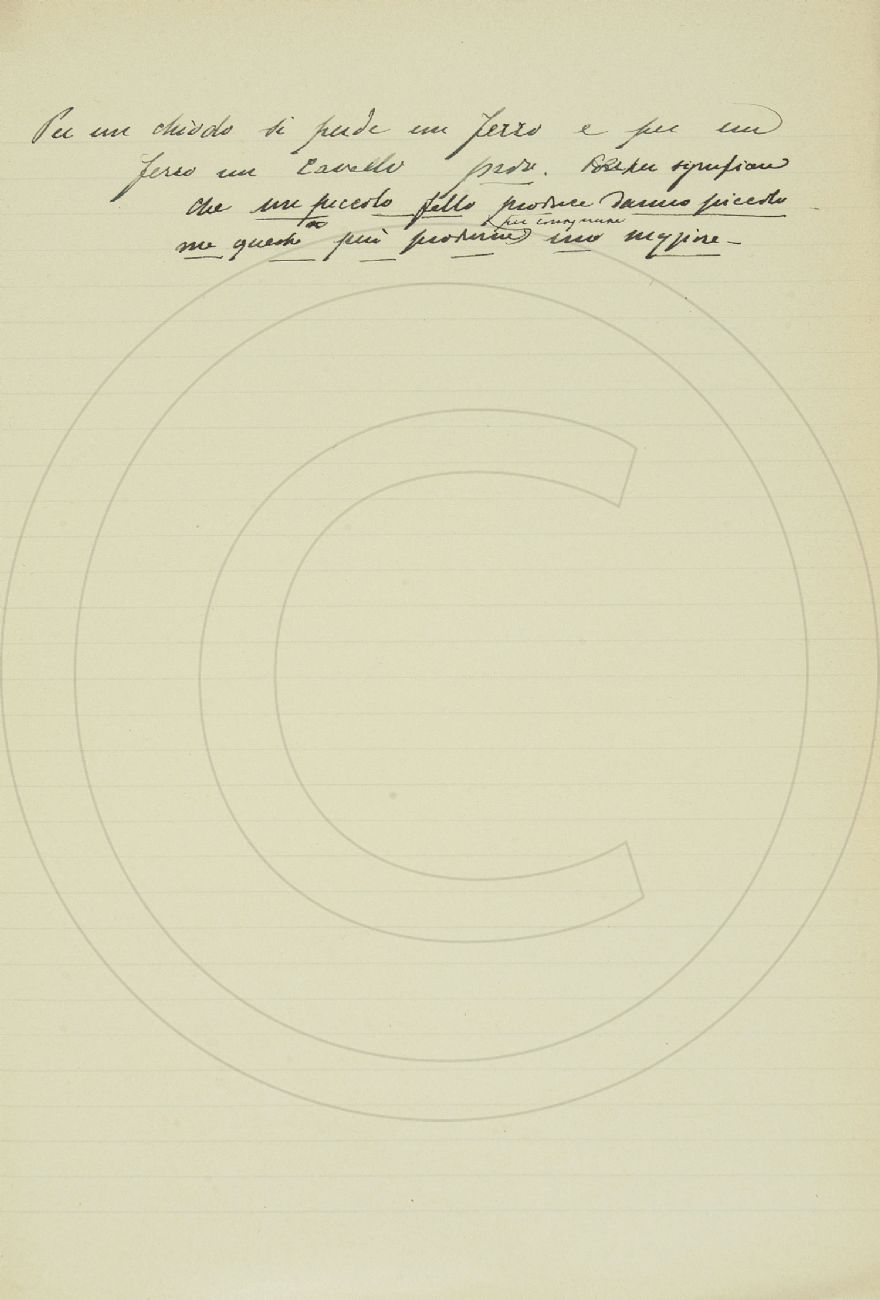 Per un chiodo si perde un ferro e per un
ferro un cavallo prov. per significare
che un piccolo fallo produce danno piccolo
per conseguenza
ma questo può produrne uno maggiore –